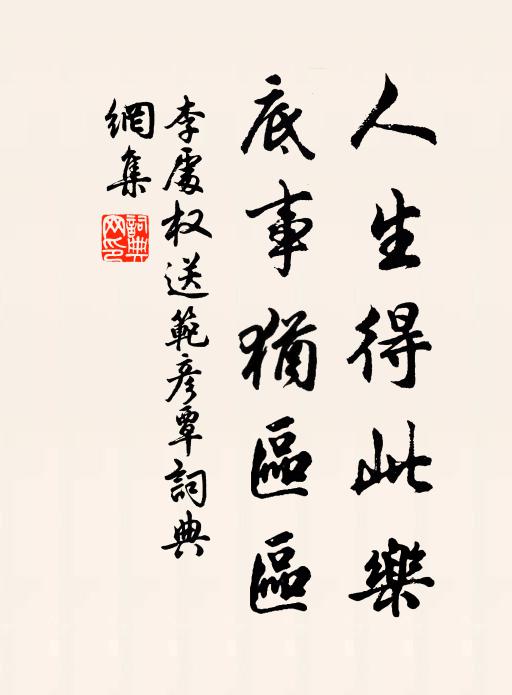 人生得此樂
底事猶區區
李處权送範彦覃詞典
網集
詞典
网印